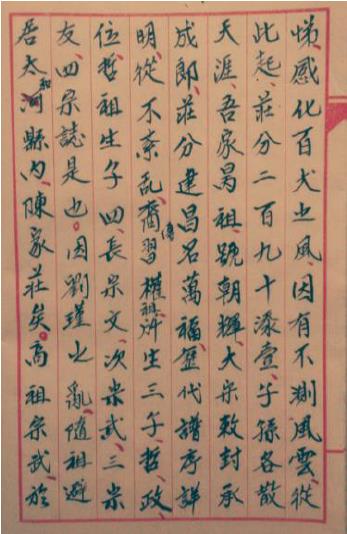 悌、感化百犬之風、因有不測風雲、從
此起、莊分二百九十漆壹、子孫各散
天涯、吾家昺祖、號朝輝、大宋敕封承
成郎、莊分建昌名萬福、歷代譜序詳
明、從不紊亂、裔傳習權祖所生三子、哲、政、
位、哲祖生子四、長宗文、次宗武、三宗
友、四宗誌是也。因劉瑾之亂、隨祖避
居太和縣內、陳家莊矣。高祖宗武、於